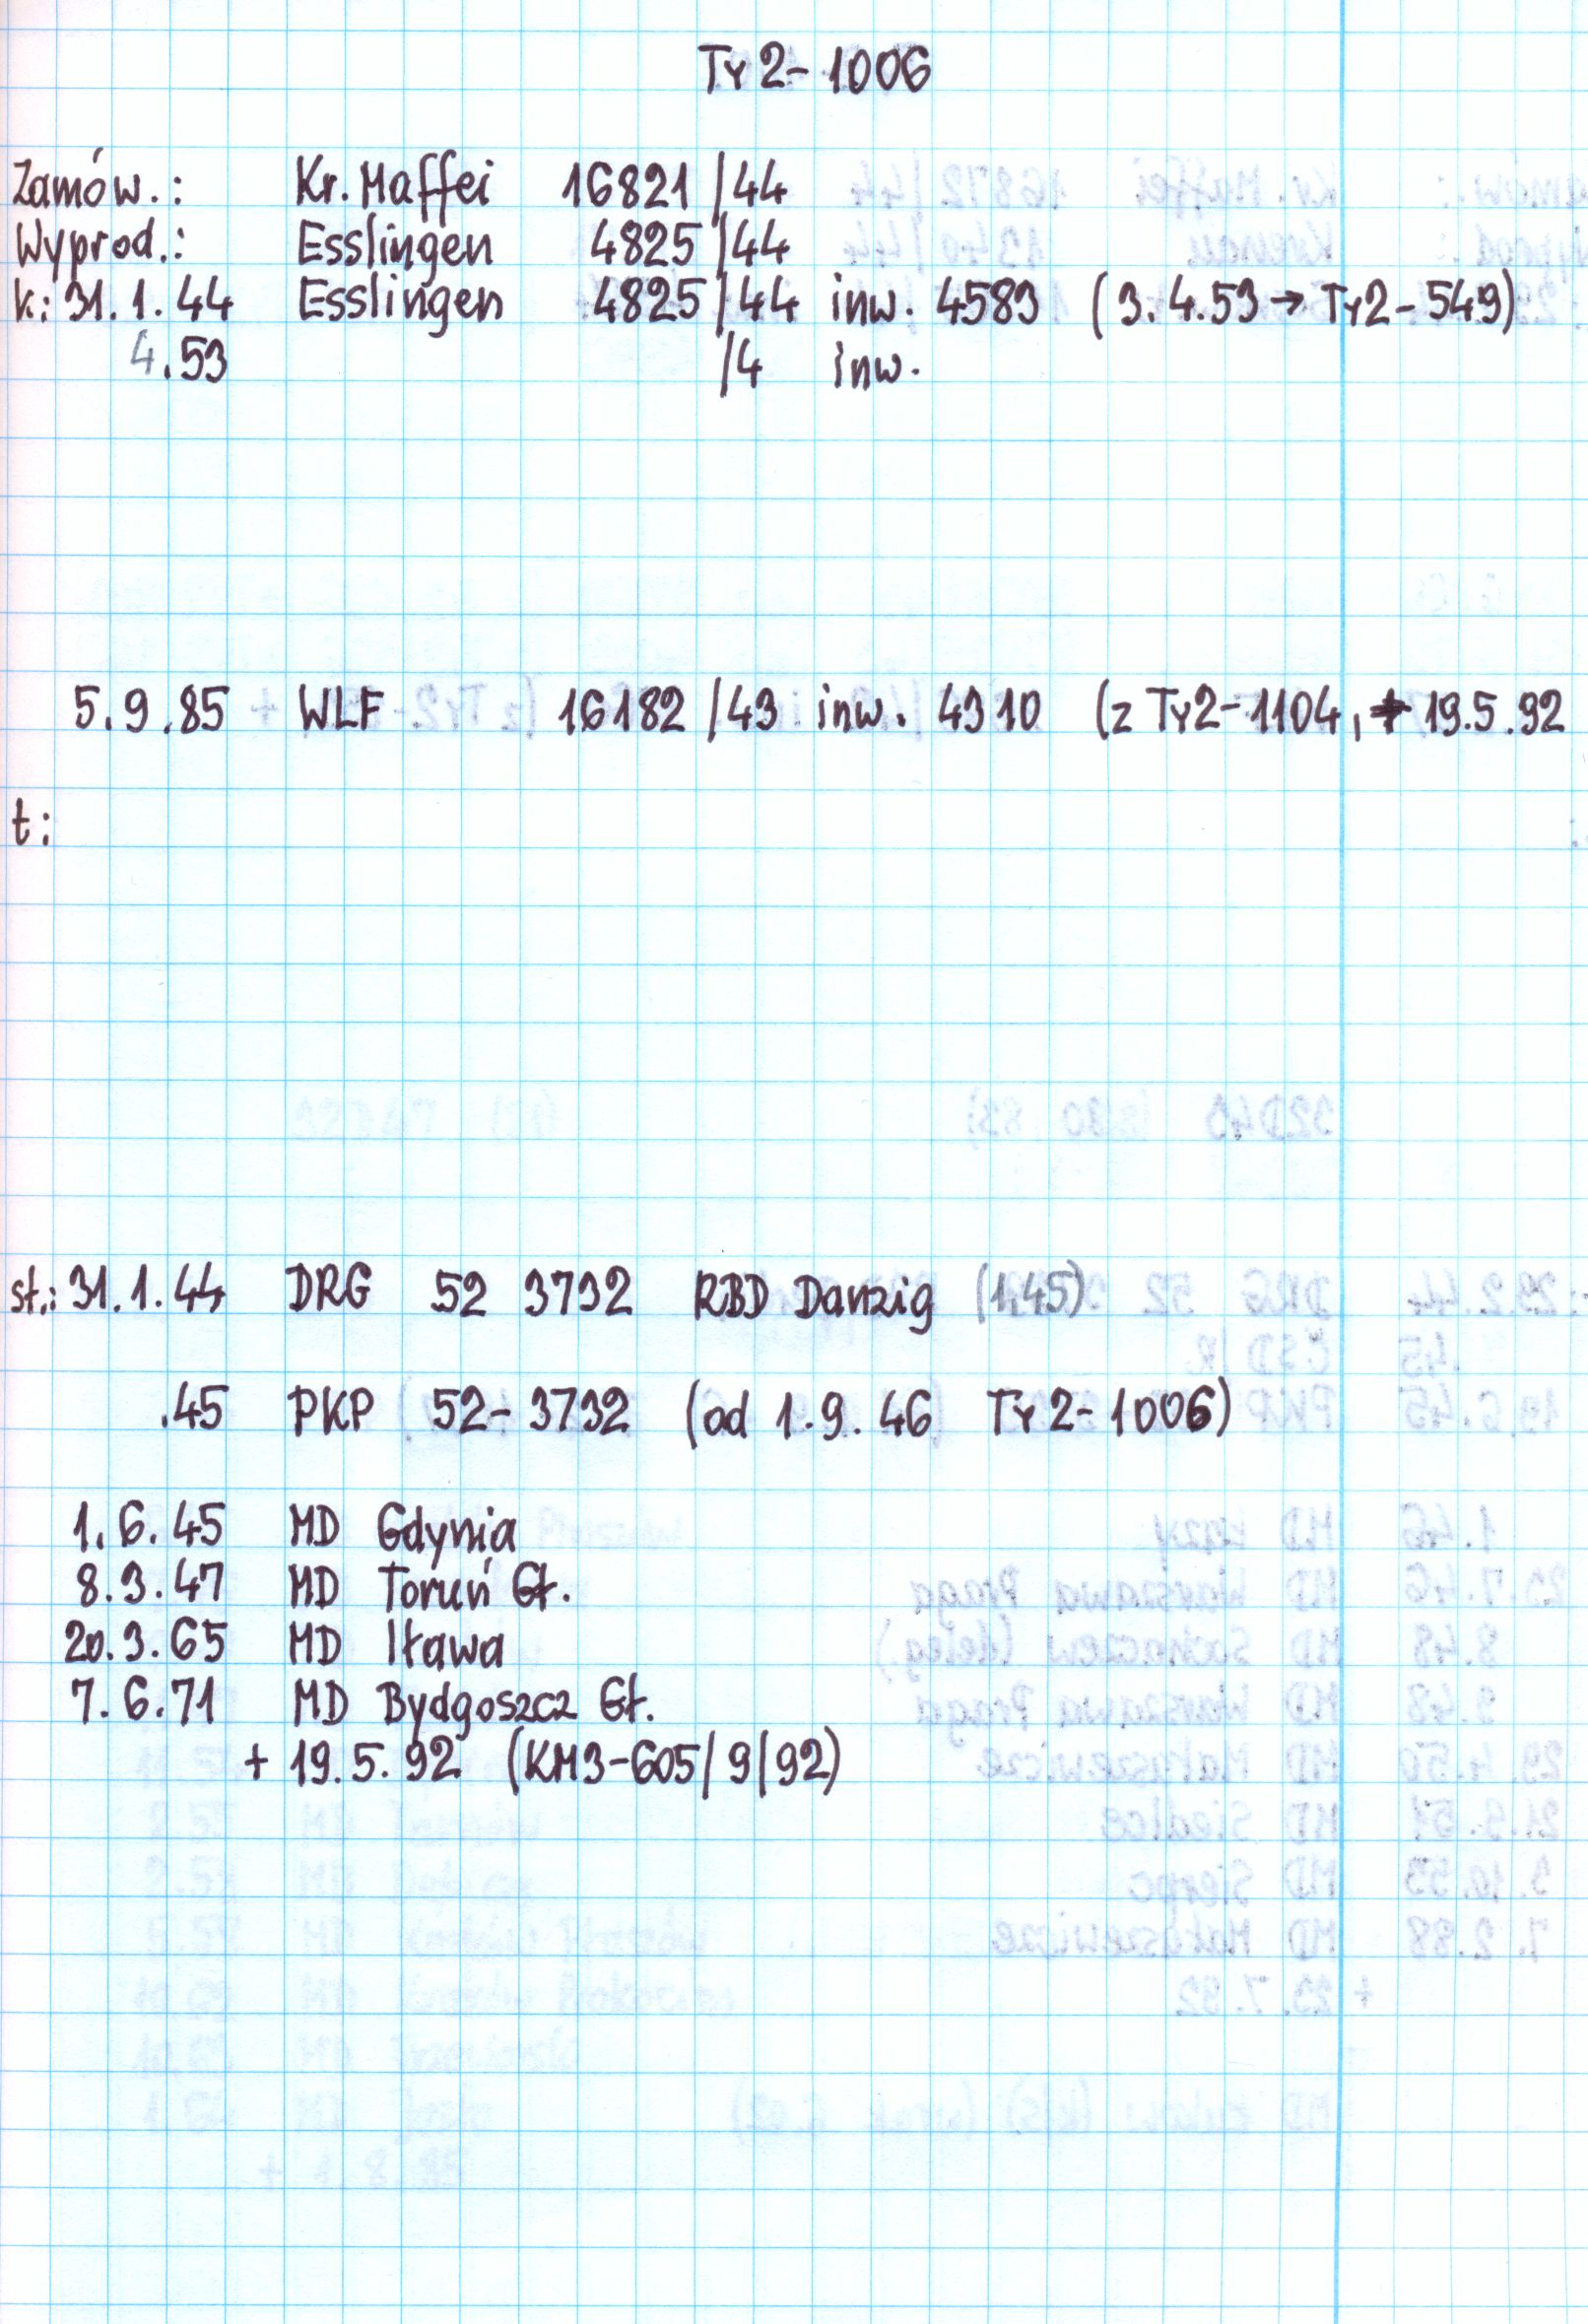 Ty2-1006
Zamów.: Kr. Maffei 16821/44
Wyprod.: Esslingen 4825/44
k: 31.1.44 Esslingen 4825/44 inw. 4583 (3.4.53 → Ty2-549)
4.53 /4 inw.
5.9.85 WLF 16182/43 inw. 4310 (z Ty2-1104, + 19.5.92
t:
st.: 31.1.44 DRG 52 3732 RBD Danzig (1.45)
.45 PKP 52-3732 (od 1.9.46 Ty2-1006)
1.6.45 MD Gdynia
8.3.47 MD Toruń Gł.
20.3.65 MD Iława
7.6.71 MD Bydgoszcz Gł.
+ 19.5.92 (KM3-605/9/92)